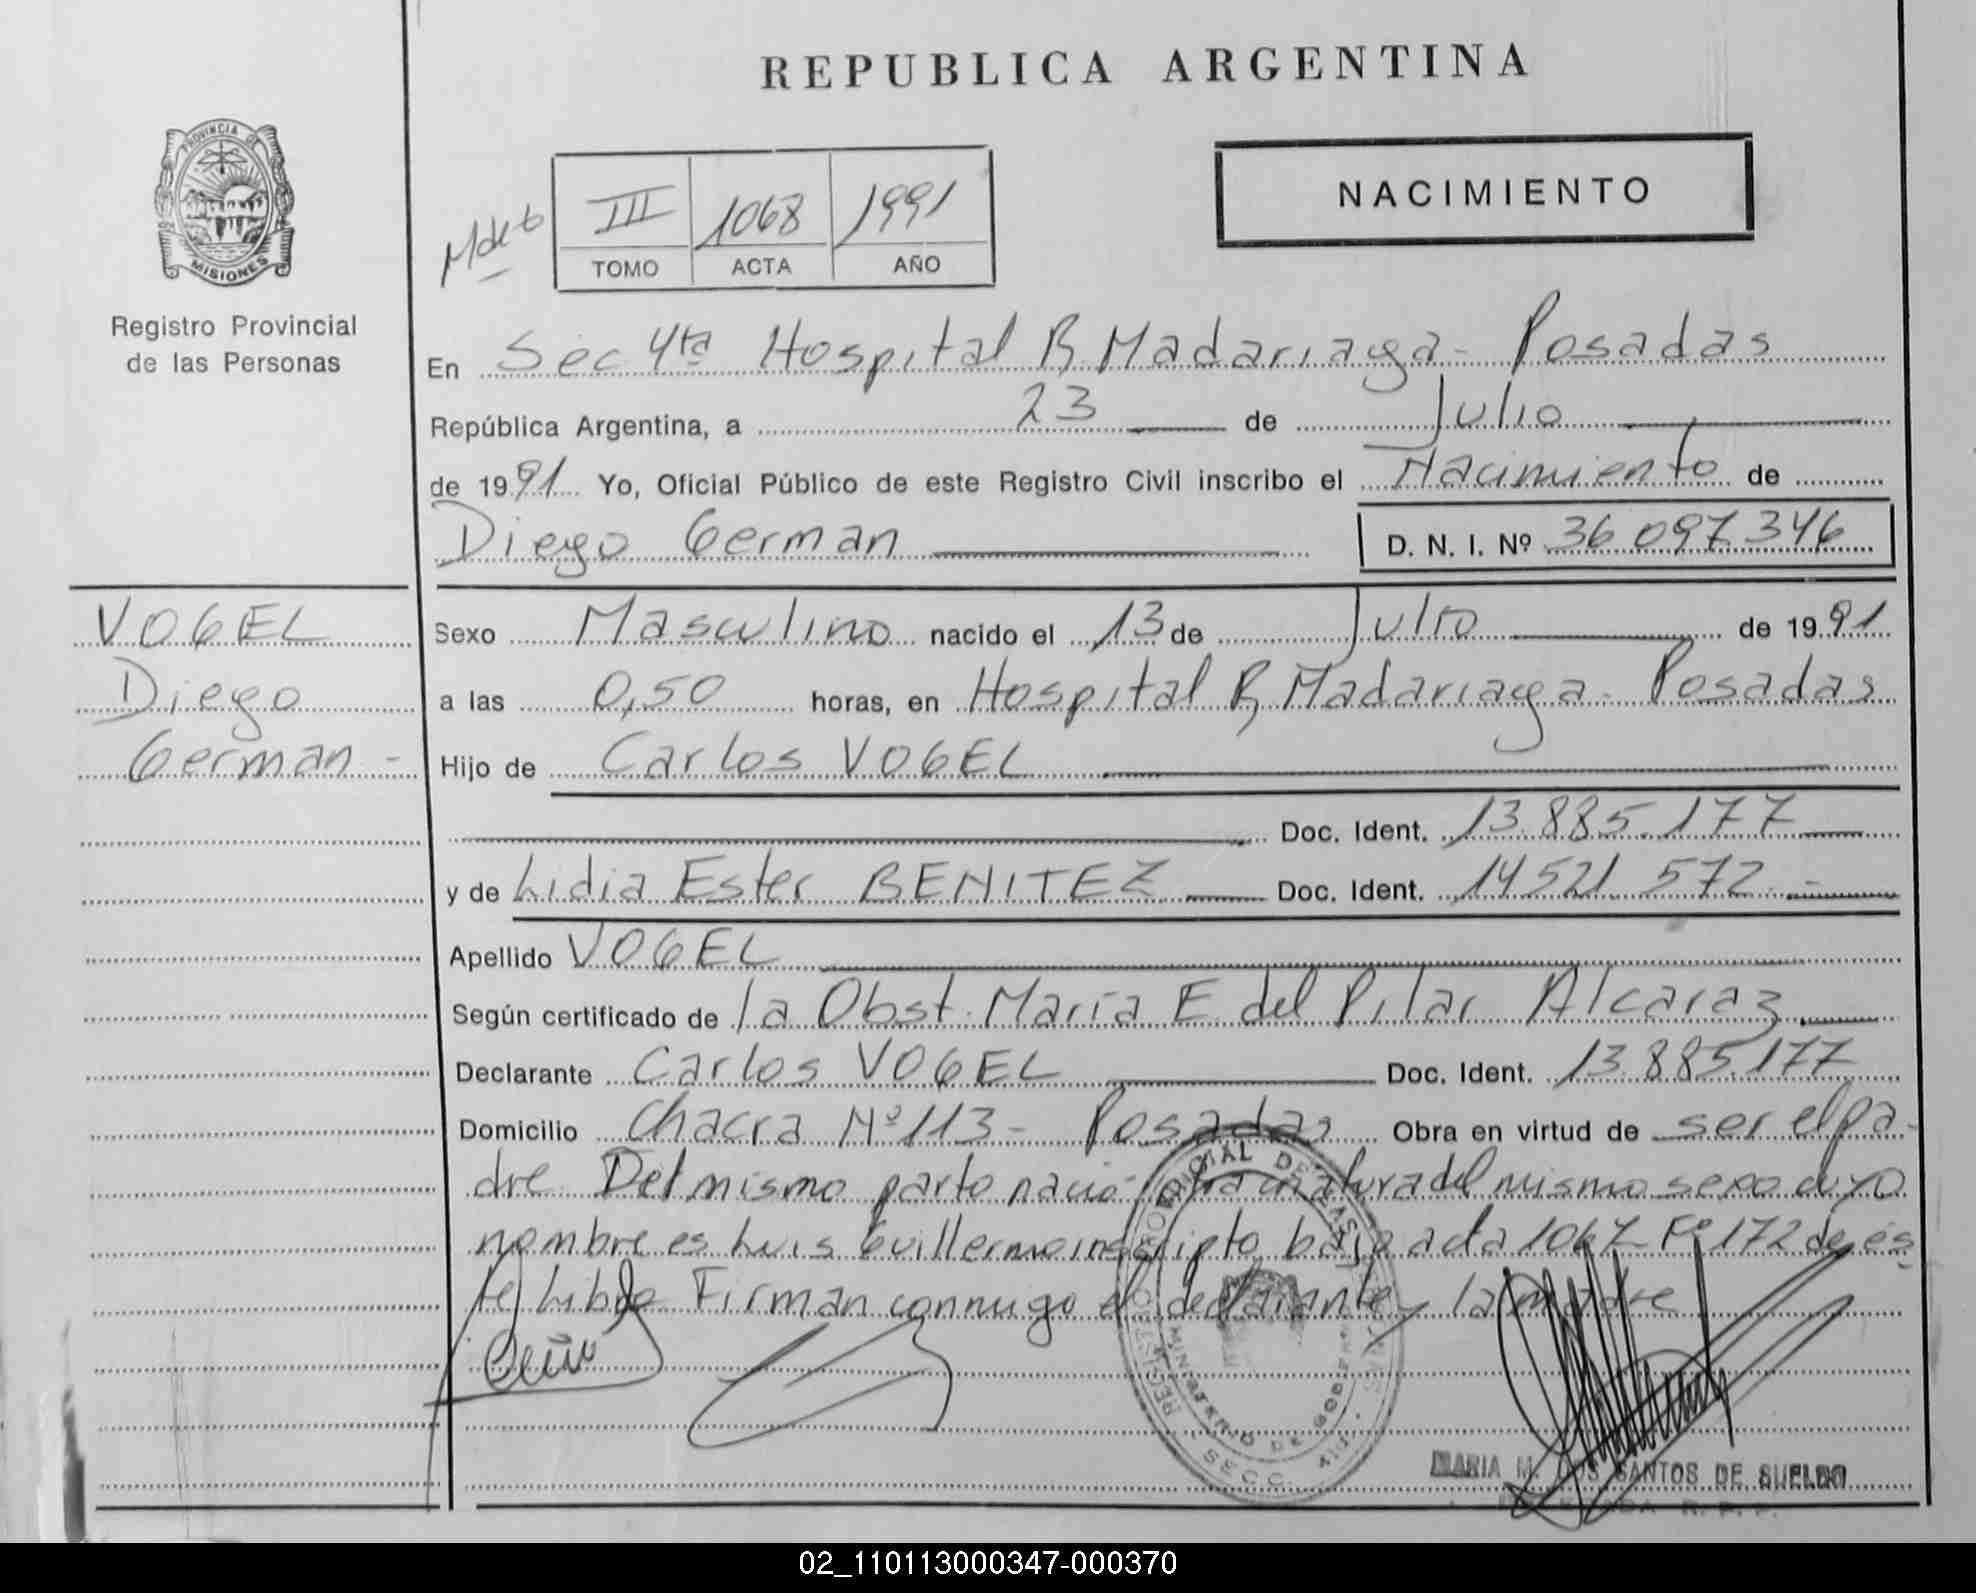 REPUBLICA ARGENTINA
PROVINCIA DE
MISIONES
Registro Provincial
de las Personas
NACIMIENTO
III 1068 1991
TOMO ACTA AÑO
En Sec 4ta Hospital R. Madariaga - Posadas
República Argentina, a 23 de Julio
de 1991 Yo, Oficial Público de este Registro Civil inscribo el Nacimiento de
Diego German D. N. I. Nº 36.097.346
VOGEL
Diego
German -
Sexo Masculino nacido el 13 de Julio de 1991
a las 0,50 horas, en Hospital R. Madariaga - Posadas
Hijo de Carlos VOGEL
Doc. Ident. 13.885.177
y de Lidia Ester BENITEZ Doc. Ident. 14.521.572 -
Apellido VOGEL
Según certificado de la Obst. María E. del Pilar Alcaraz
Declarante Carlos VOGEL Doc. Ident. 13.885.177
Domicilio Chacra Nº 113 - Posadas Obra en virtud de ser el pa-
dre. Del mismo parto nació otra criatura del mismo sexo cuyo
nombre es Luis Guillermo inscripto bajo acta 1067 Fº 172 de es-
te Libro Firman conmigo el declarante y la madre
REGISTRO PROVINCIAL DE LAS PERSONAS
MINISTERIO DE GOBIERNO
SECC. 4ta.
MARIA M. DOS SANTOS DE SUELDO
R. P. P.
02_110113000347-000370